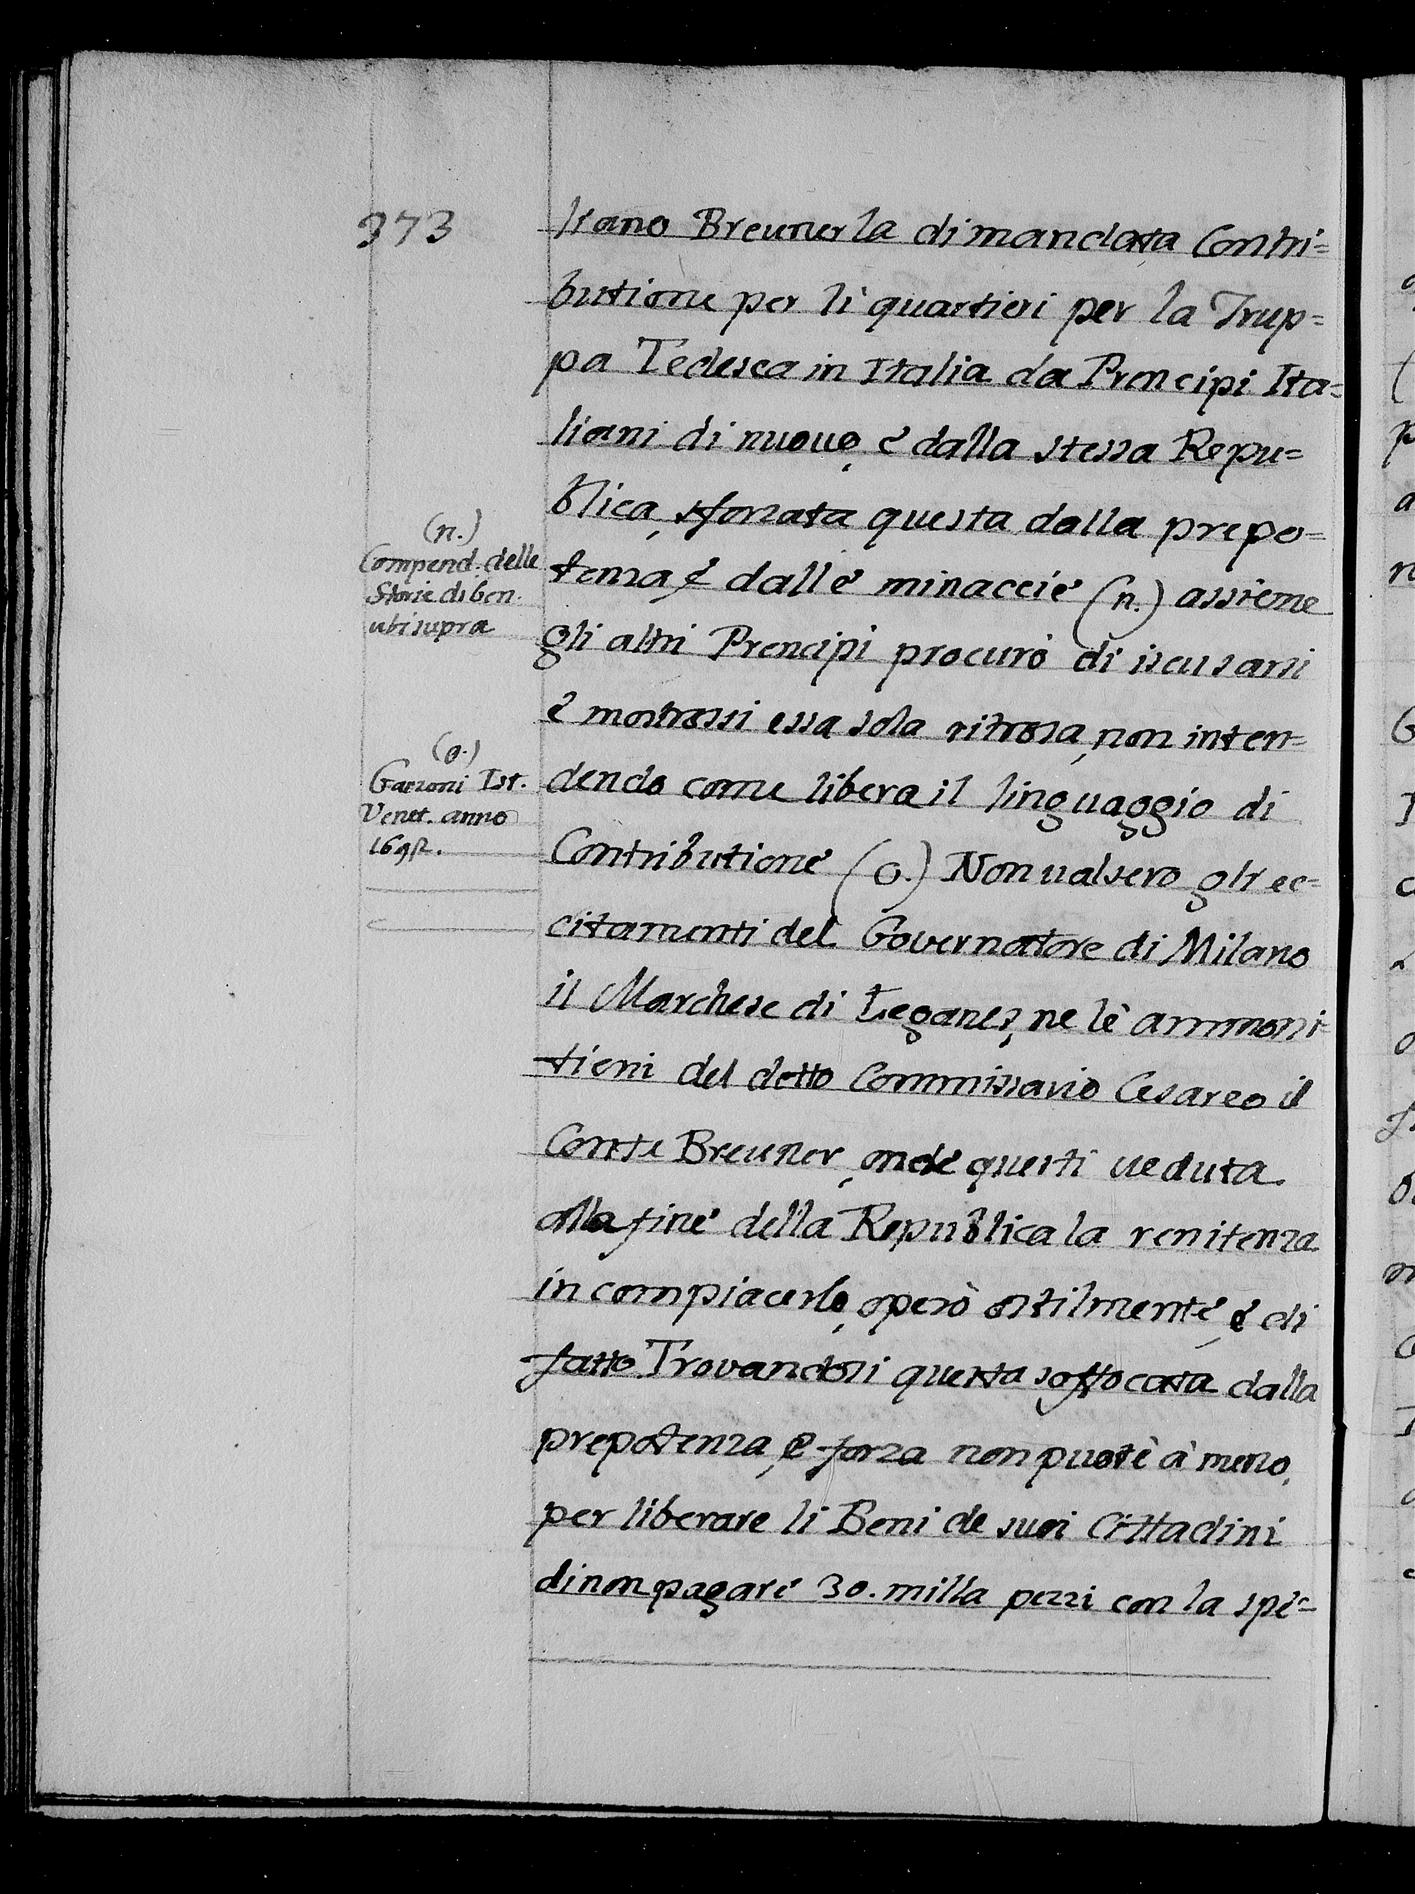 373
liano Breuner la dimandata Contri=
butione per li quartieri per la Trup=
pa Tedesca in Italia da Prencipi Ita=
liani di nuouo, e dalla stessa Repu=
blica, sforzata questa dalla prepo=
tenza, e dalle minaccie (n.) assieme
gli altri Prencipi procurò di iscusarsi
e mostrossi essa sola ritrosa, non inten=
dendo come libera il linguaggio di
Contributione (o.) Non ualsero gli ec=
citamenti del Governatore di Milano
il Marchese di Leganes, ne lè ammoni=
tieni del detto Commissario Cesareo il
Conte Breuner, onde questi ueduta
alla fine della Republica la renitenza
in compiacerlo, operò ostilmente, e di
fatto Trovandosi questa soffocata dalla
prepotenza, e forza non puotè à meno,
per liberare li Beni de suoi Cittadini
di non pagare 30. milla pezzi con la spe=
(n.)
Compend. delle
Storie di Gen.
ubi supra
(o.)
Garzoni Ist.
Venet. anno